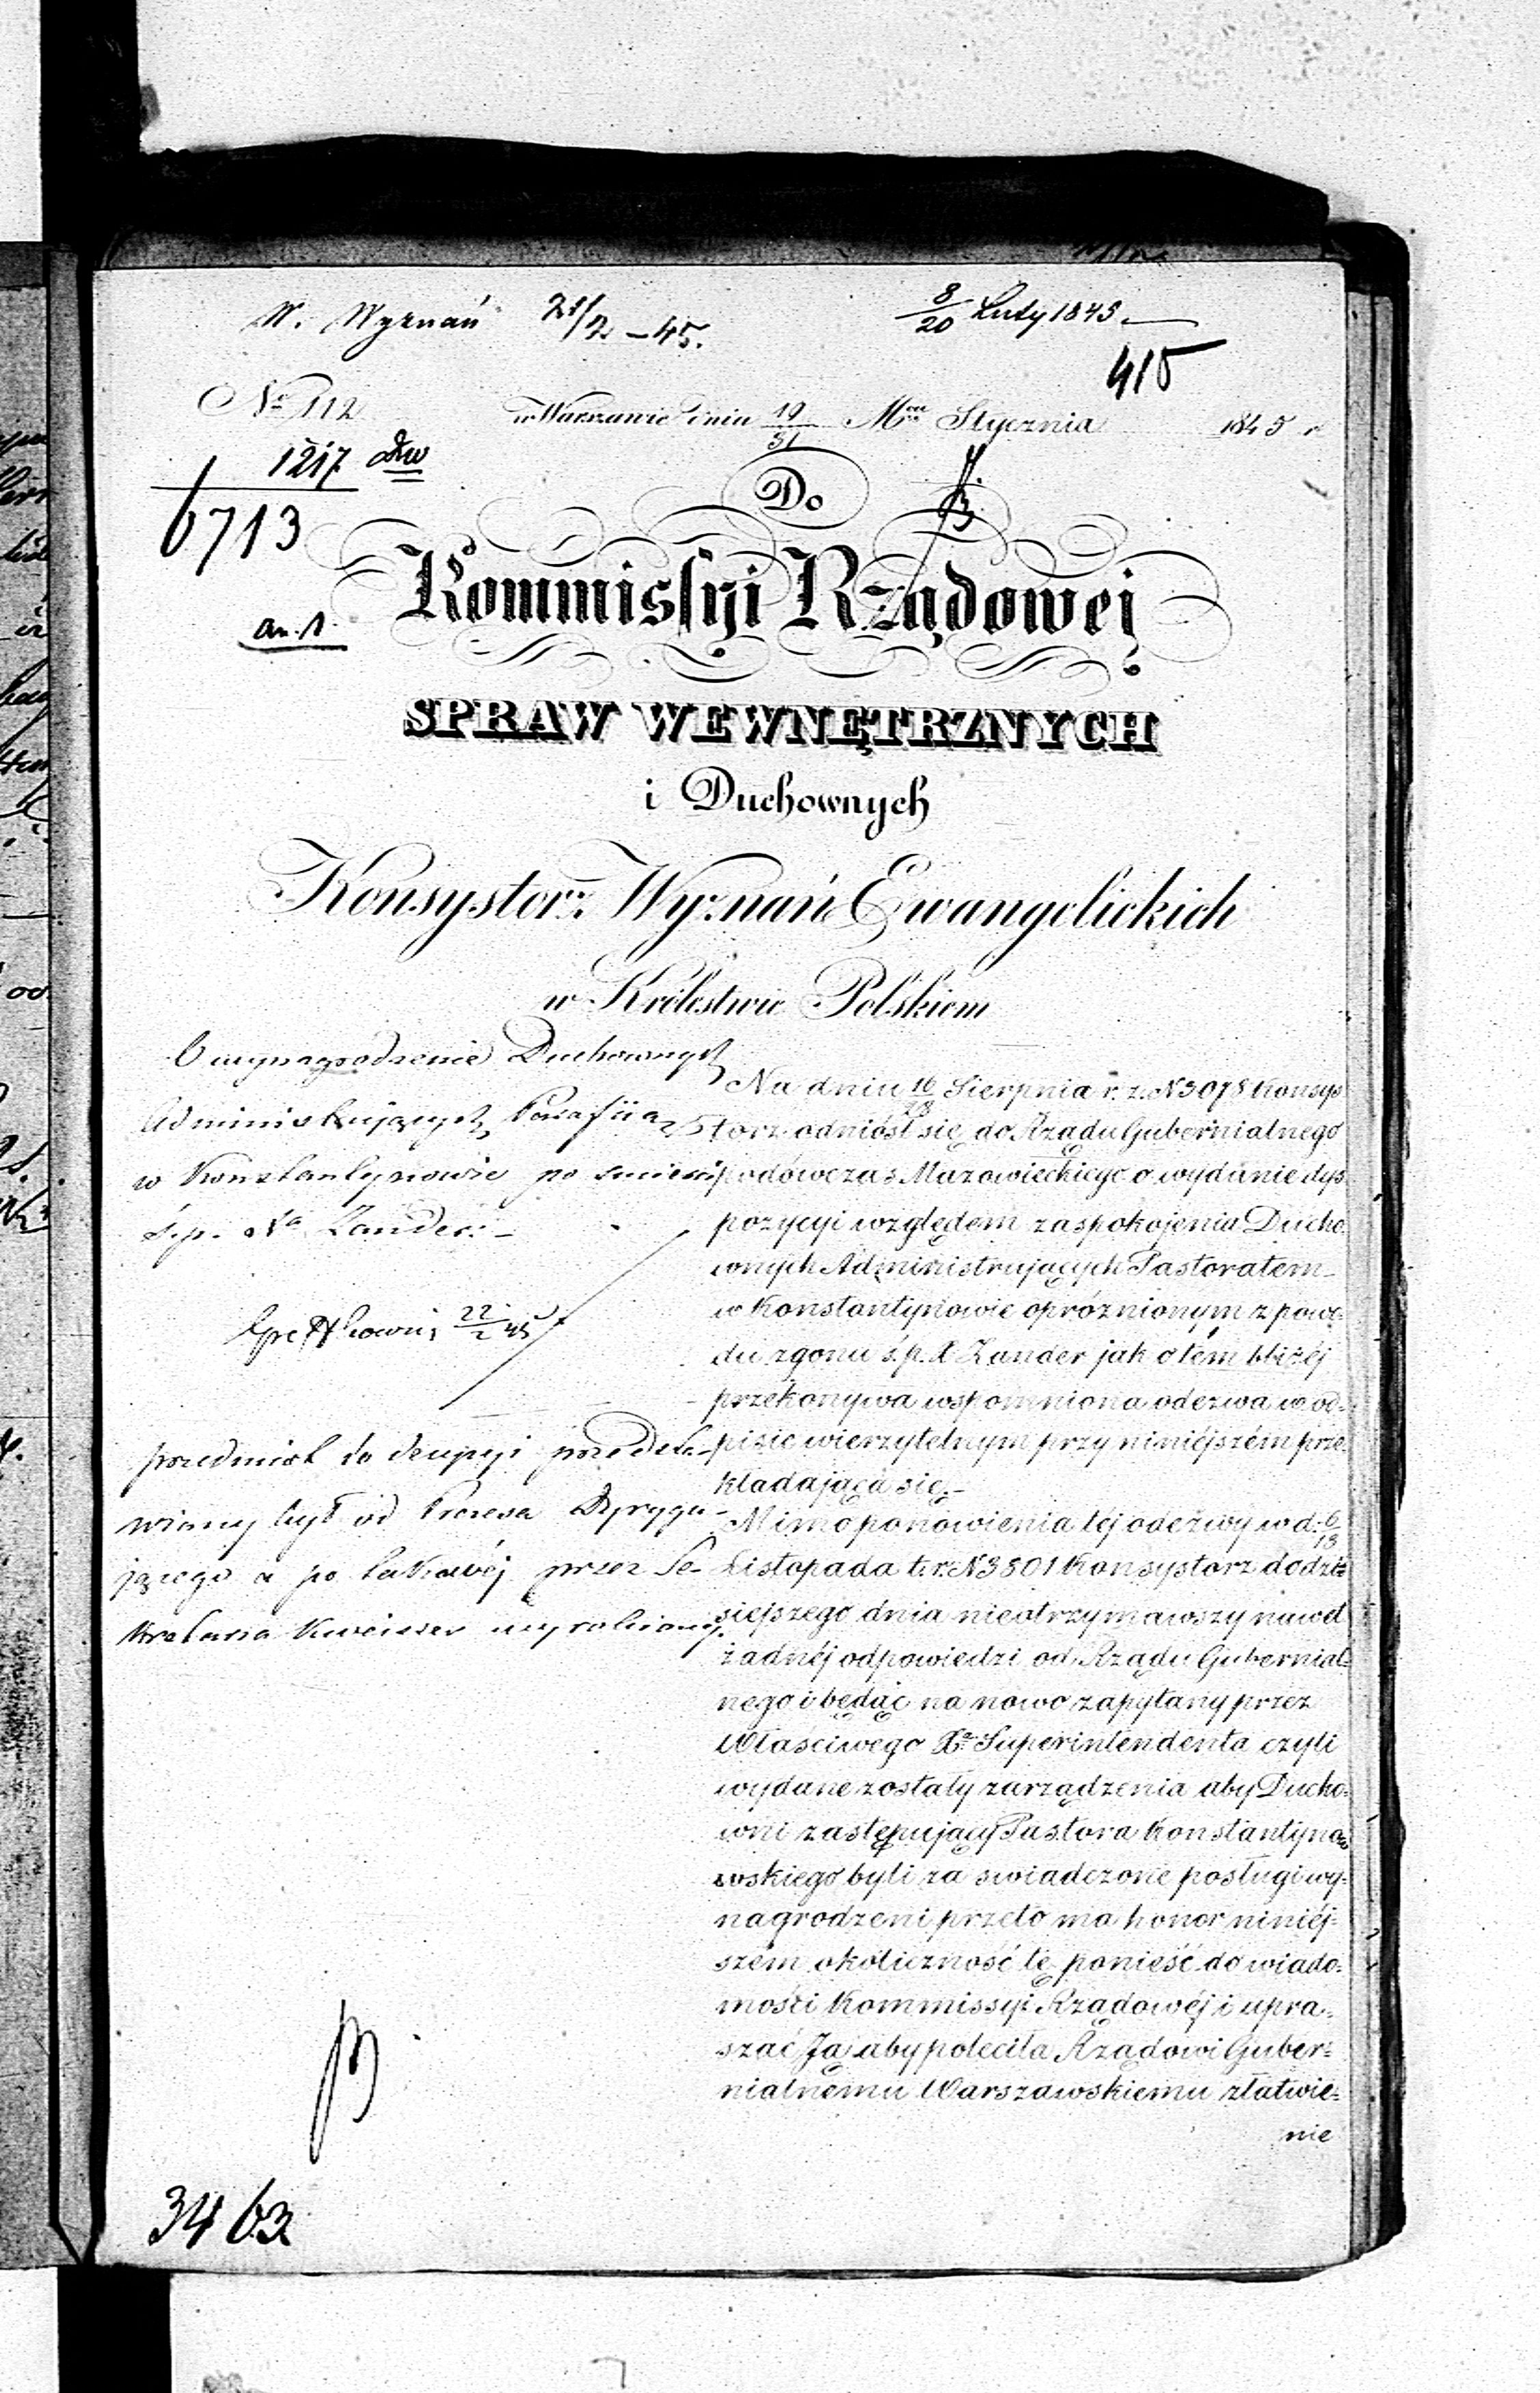 W. Wyznań 21/2 – 45.
8/20 Luty 1845
415
No 112
w Warszawie dnia 19/31 Mca Stycznia 1845 r
1217
6713
Do
an. 1.
Kommissyi Rządowej
SPRAW WEWNĘTRZNYCH
i Duchownych
Konsystorz Wyznań Ewangelickich
w Królestwie Polskiem
O wynagrodzenie Duchownych
Administrujących Parafiią
w Konstantynowie po śmierci
ś.p. Xa Zander. –
22/2 45
przedmiot do decyzyi przedsta-
wiony był od Prezesa Dyrygu-
jącego a po takowéj przez Se-
kretarza wyrobiony.
Na dniu 16/28 Sierpnia r. z. N 3078 Konsys
torz odniósł się do Rządu Gubernialnego
podówczas Mazowieckiego o wydanie dys
pozycyi względem zaspokojenia Ducho-
wnych Administrujących Pastoratem
w Konstantynowie opróżnionym z powo-
du zgonu ś.p. X Zander jak o tém bliżéj
przekonywa wspomniona odezwa w od-
pisie wierzytelnym przy niniéjszém prze-
kładająca się. –
Mimo ponowienia téj odezwy w d. 6/18
Listopada t. r. N 3801 Konsystorz do dzi-
siejszego dnia nieotrzymawszy nawet
żadnéj odpowiedzi od Rządu Gubernial-
nego i będąc na nowo zapytany przez
Właściwego Xa Superintendenta czyli
wydane zostały zarządzenia aby Ducho-
wni zastępujący Pastora Konstantyno
wskiego byli za świadczone posługi wy-
nagrodzeni przeto ma honor niniéj-
szém okoliczność tę ponieść do wiado-
mości Kommissyi Rządowéj i upra-
szać Ją aby poleciła Rządowi Guber-
nialnemu Warszawskiemu załatwie-
nie
3463